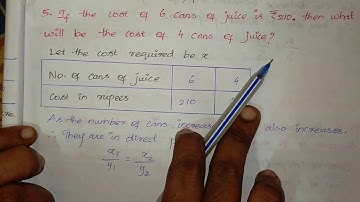 5. If the cost of 6 cans of juice is ₹210, then what
will be the cost of 4 cans of juice?
Let the cost required be x
No. of cans of juice 6 4
Cost in rupees 210
As the number of cans increases also increases.
∴ They are in direct
x₁/y₁ = x₂/y₂